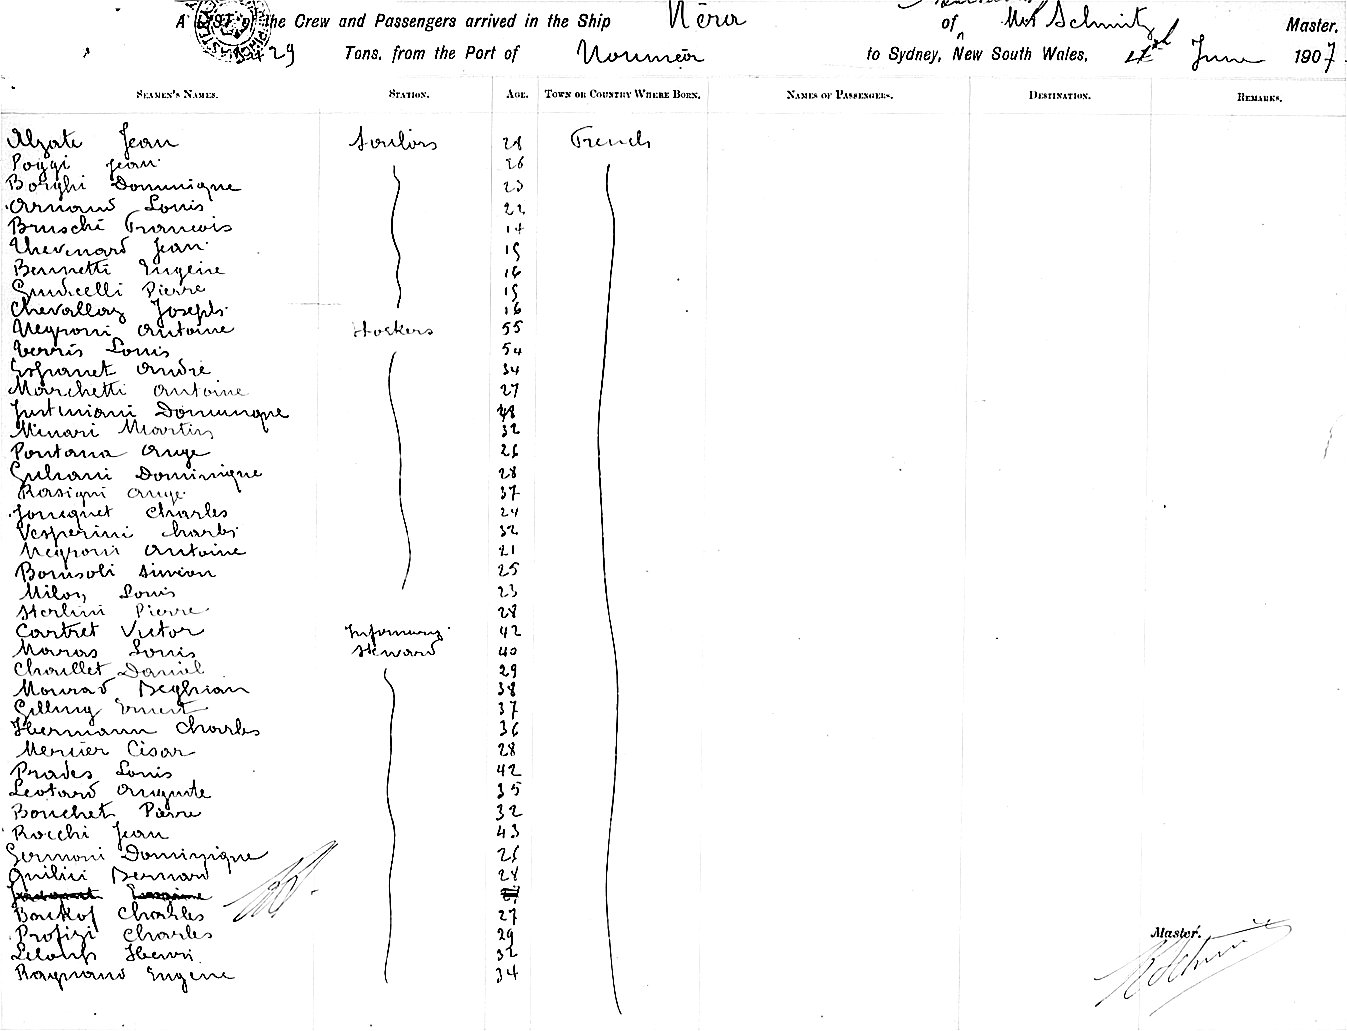 A LIST of the Crew and Passengers arrived in the Ship Néra of Mrs Schmitz Master.
3429 Tons, from the Port of Nouméa to Sydney, New South Wales, June 1907.
SEAMEN'S NAMES. STATION. AGE. TOWN OR COUNTRY WHERE BORN. NAMES OF PASSENGERS. DESTINATION. REMARKS.
Alzate Jean Sailors 28 French
Poggi Jean 26
Borghi Dominique 23
Arnaud Louis 22
Bruschi Francois 14
Thevenard Jean 15
Bennetti Eugène 16
Giudicelli Pierre 15
Chevallay Joseph 16
Negroni Antoine Stockers 55
Verris Louis 54
Espanet André 34
Marchetti Antoine 27
Justiniani Dominique 48
Minari Martin 32
Pontana Ange 26
Giuliani Dominique 28
Rossigni Ange 37
Jouquet Charles 24
Vesperini Charles 32
Negroni Antoine 21
Bonisoli Simeon 25
Milon Louis 23
Sterlini Pierre 28
Cartret Victor Infirmary 42
Marras Louis Steward 40
Chaillet Daniel 29
Mourad Deghian 38
Gilling Ernest 37
Hermann Charles 36
Mercier César 28
Prades Louis 42
Leotard Auguste 35
Bouchet Pierre 32
Rocchi Jean 43
Germoni Dominique 26
Quilini Bernard 28
Boukof Charles 27
Profizi Charles 29
Leloup Henri 32
Raynaud Eugène 34
Master.